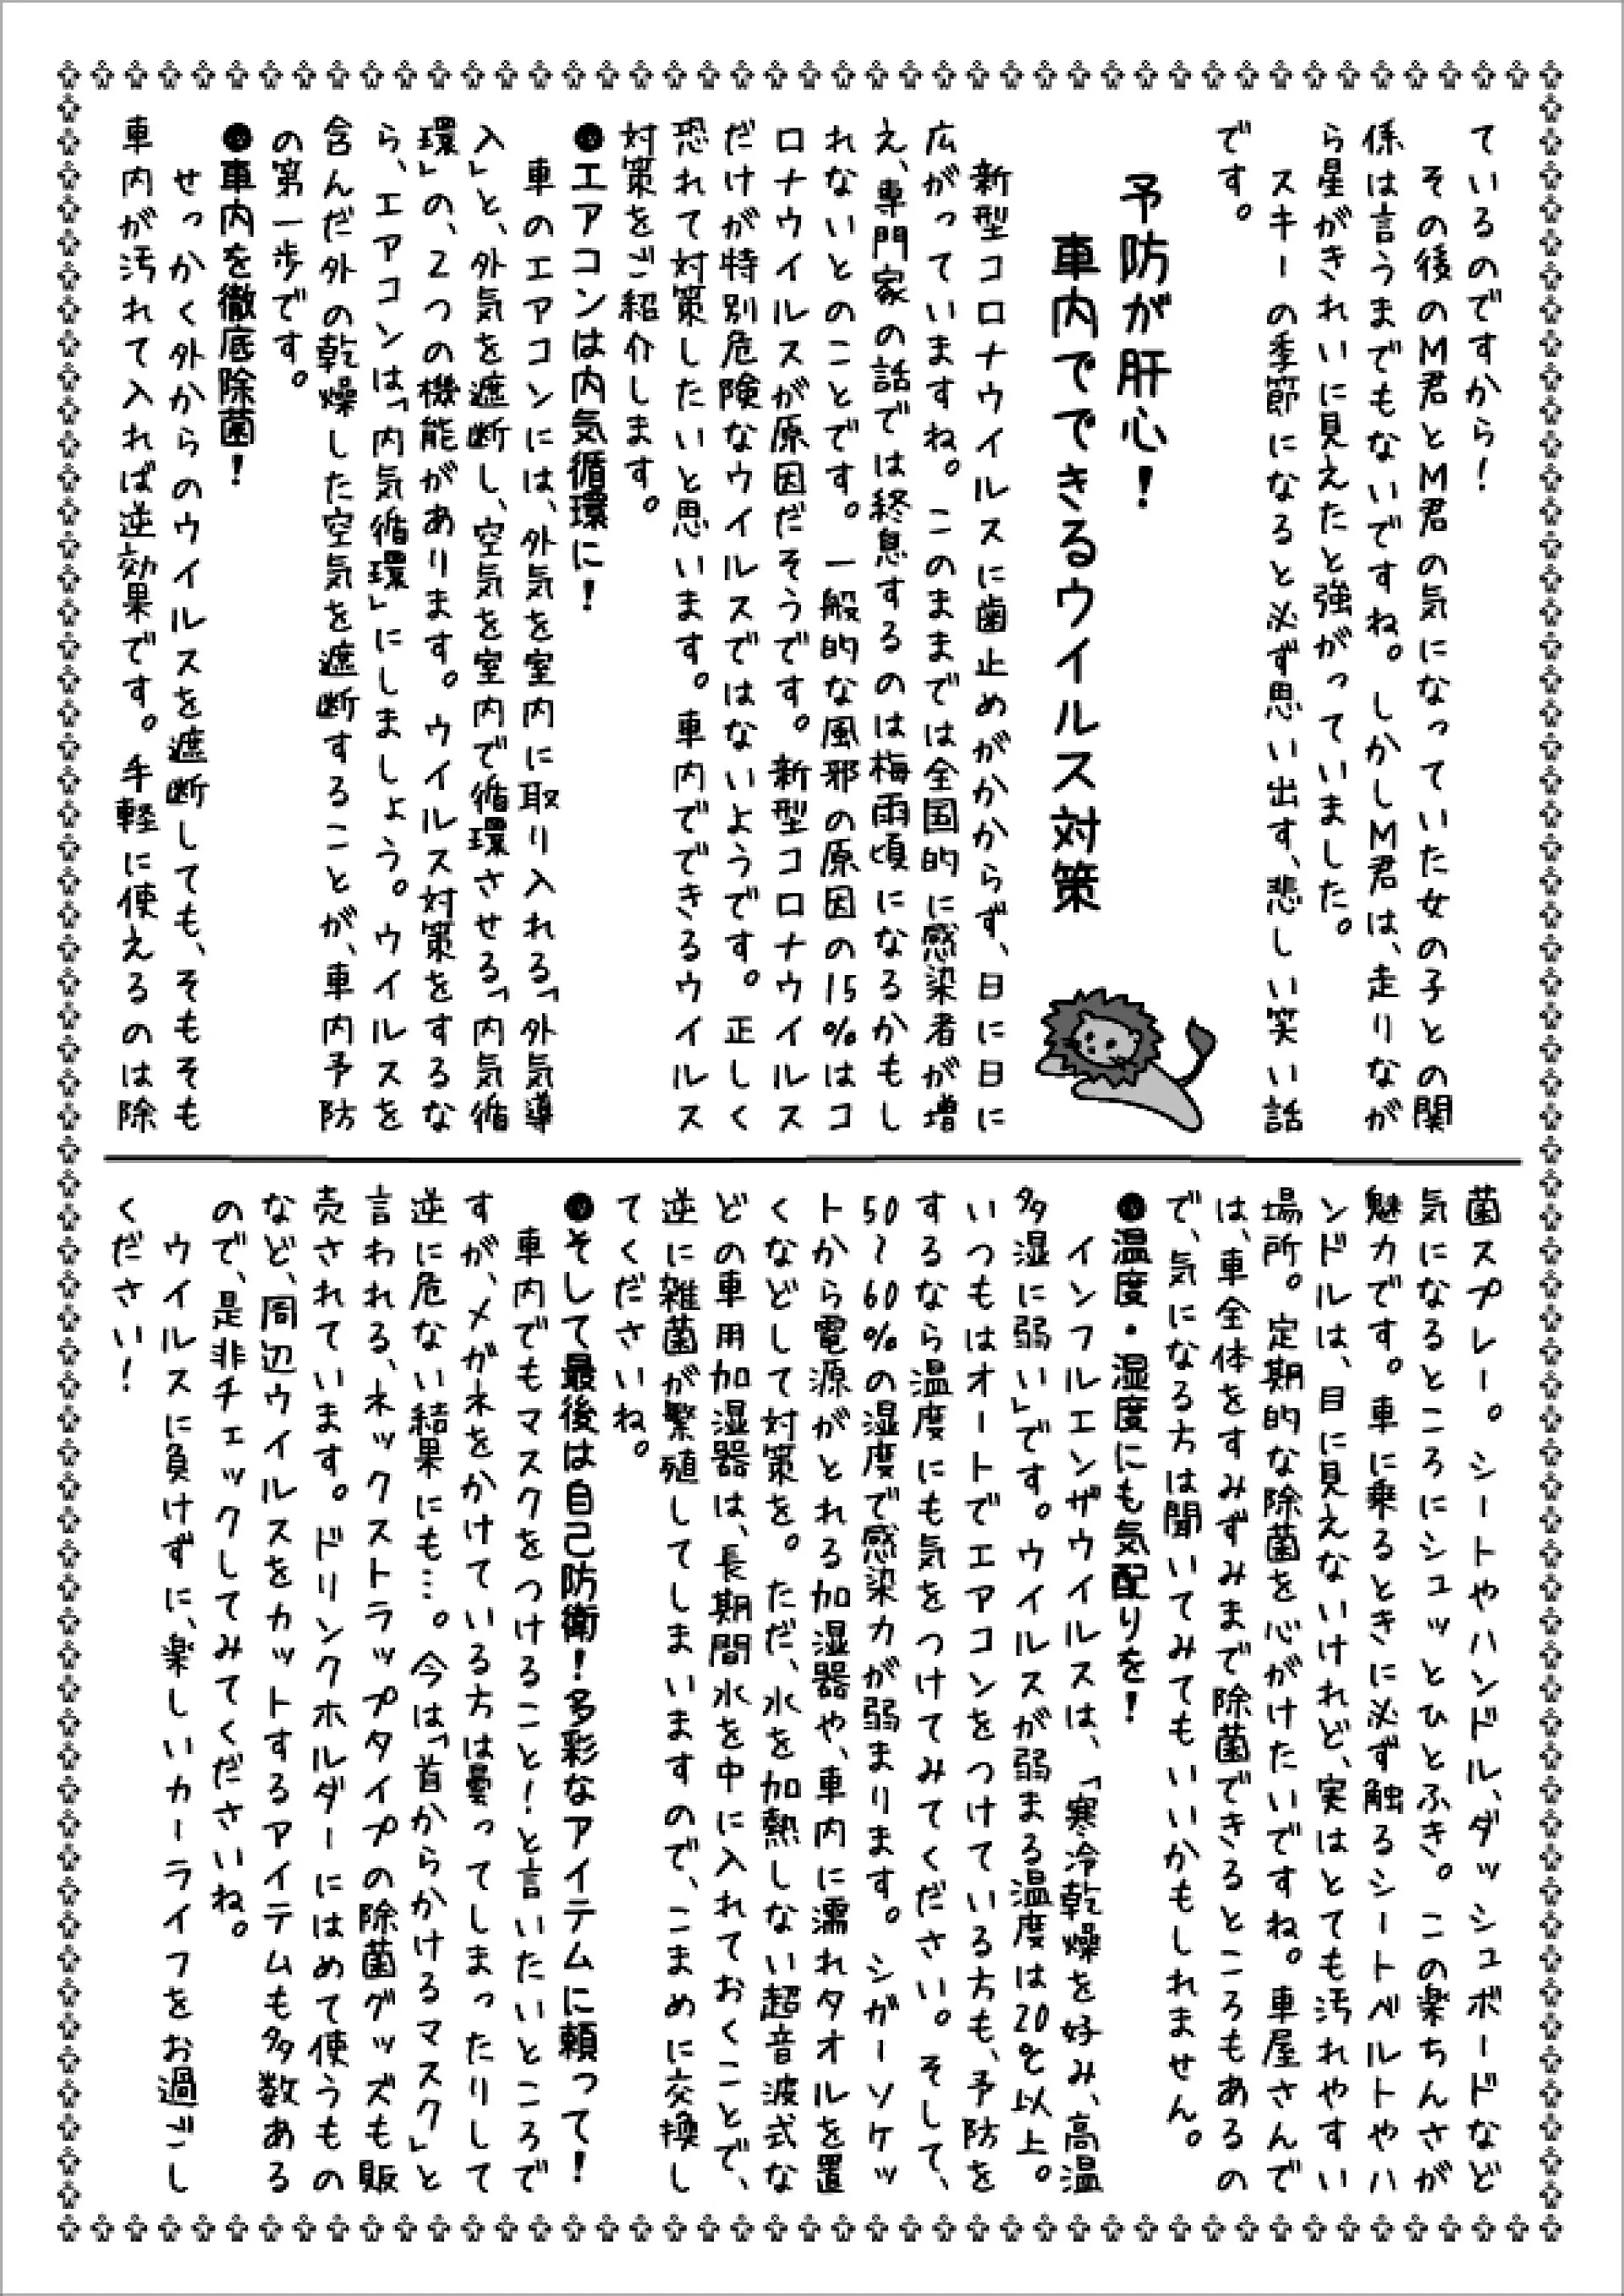 ているのですから！
　その後のM君とM君の気になっていた女の子との関
係は言うまでもないですね。しかしM君は、走りなが
ら星がきれいに見えたと強がっていました。
　スキーの季節になると必ず思い出す、悲しい笑い話
です。
予防が肝心！
車内でできるウイルス対策
　新型コロナウイルスに歯止めがかからず、日に日に
広がっていますね。このままでは全国的に感染者が増
え、専門家の話では終息するのは梅雨頃になるかもし
れないとのことです。一般的な風邪の原因の15％はコ
ロナウイルスが原因だそうです。新型コロナウイルス
だけが特別危険なウイルスではないようです。正しく
恐れて対策したいと思います。車内でできるウイルス
対策をご紹介します。
●エアコンは内気循環に！
　車のエアコンには、外気を室内に取り入れる「外気導
入」と、外気を遮断し、空気を室内で循環させる「内気循
環」の、2つの機能があります。ウイルス対策をするな
ら、エアコンは「内気循環」にしましょう。ウイルスを
含んだ外の乾燥した空気を遮断することが、車内予防
の第一歩です。
●車内を徹底除菌！
　せっかく外からのウイルスを遮断しても、そもそも
車内が汚れて入れば逆効果です。手軽に使えるのは除
菌スプレー。シートやハンドル、ダッシュボードなど
気になるところにシュッとひとふき。この楽ちんさが
魅力です。車に乗るときに必ず触るシートベルトやハ
ンドルは、目に見えないけれど、実はとても汚れやすい
場所。定期的な除菌を心がけたいですね。車屋さんで
は、車全体をすみずみまで除菌できるところもあるの
で、気になる方は聞いてみてもいいかもしれません。
●温度・湿度にも気配りを！
　インフルエンザウイルスは、「寒冷乾燥を好み、高温
多湿に弱い」です。ウイルスが弱まる温度は20℃以上。
いつもはオートでエアコンをつけている方も、予防を
するなら温度にも気をつけてみてください。そして、
50～60％の湿度で感染力が弱まります。シガーソケッ
トから電源がとれる加湿器や、車内に濡れタオルを置
くなどして対策を。ただ、水を加熱しない超音波式な
どの車用加湿器は、長期間水を中に入れておくことで、
逆に雑菌が繁殖してしまいますので、こまめに交換し
てくださいね。
●そして最後は自己防衛！多彩なアイテムに頼って！
　車内でもマスクをつけること！と言いたいところで
すが、メガネをかけている方は曇ってしまったりして
逆に危ない結果にも…。今は「首からかけるマスク」と
言われる、ネックストラップタイプの除菌グッズも販
売されています。ドリンクホルダーにはめて使うもの
など、周辺ウイルスをカットするアイテムも多数ある
ので、是非チェックしてみてくださいね。
　ウイルスに負けずに、楽しいカーライフをお過ごし
ください！